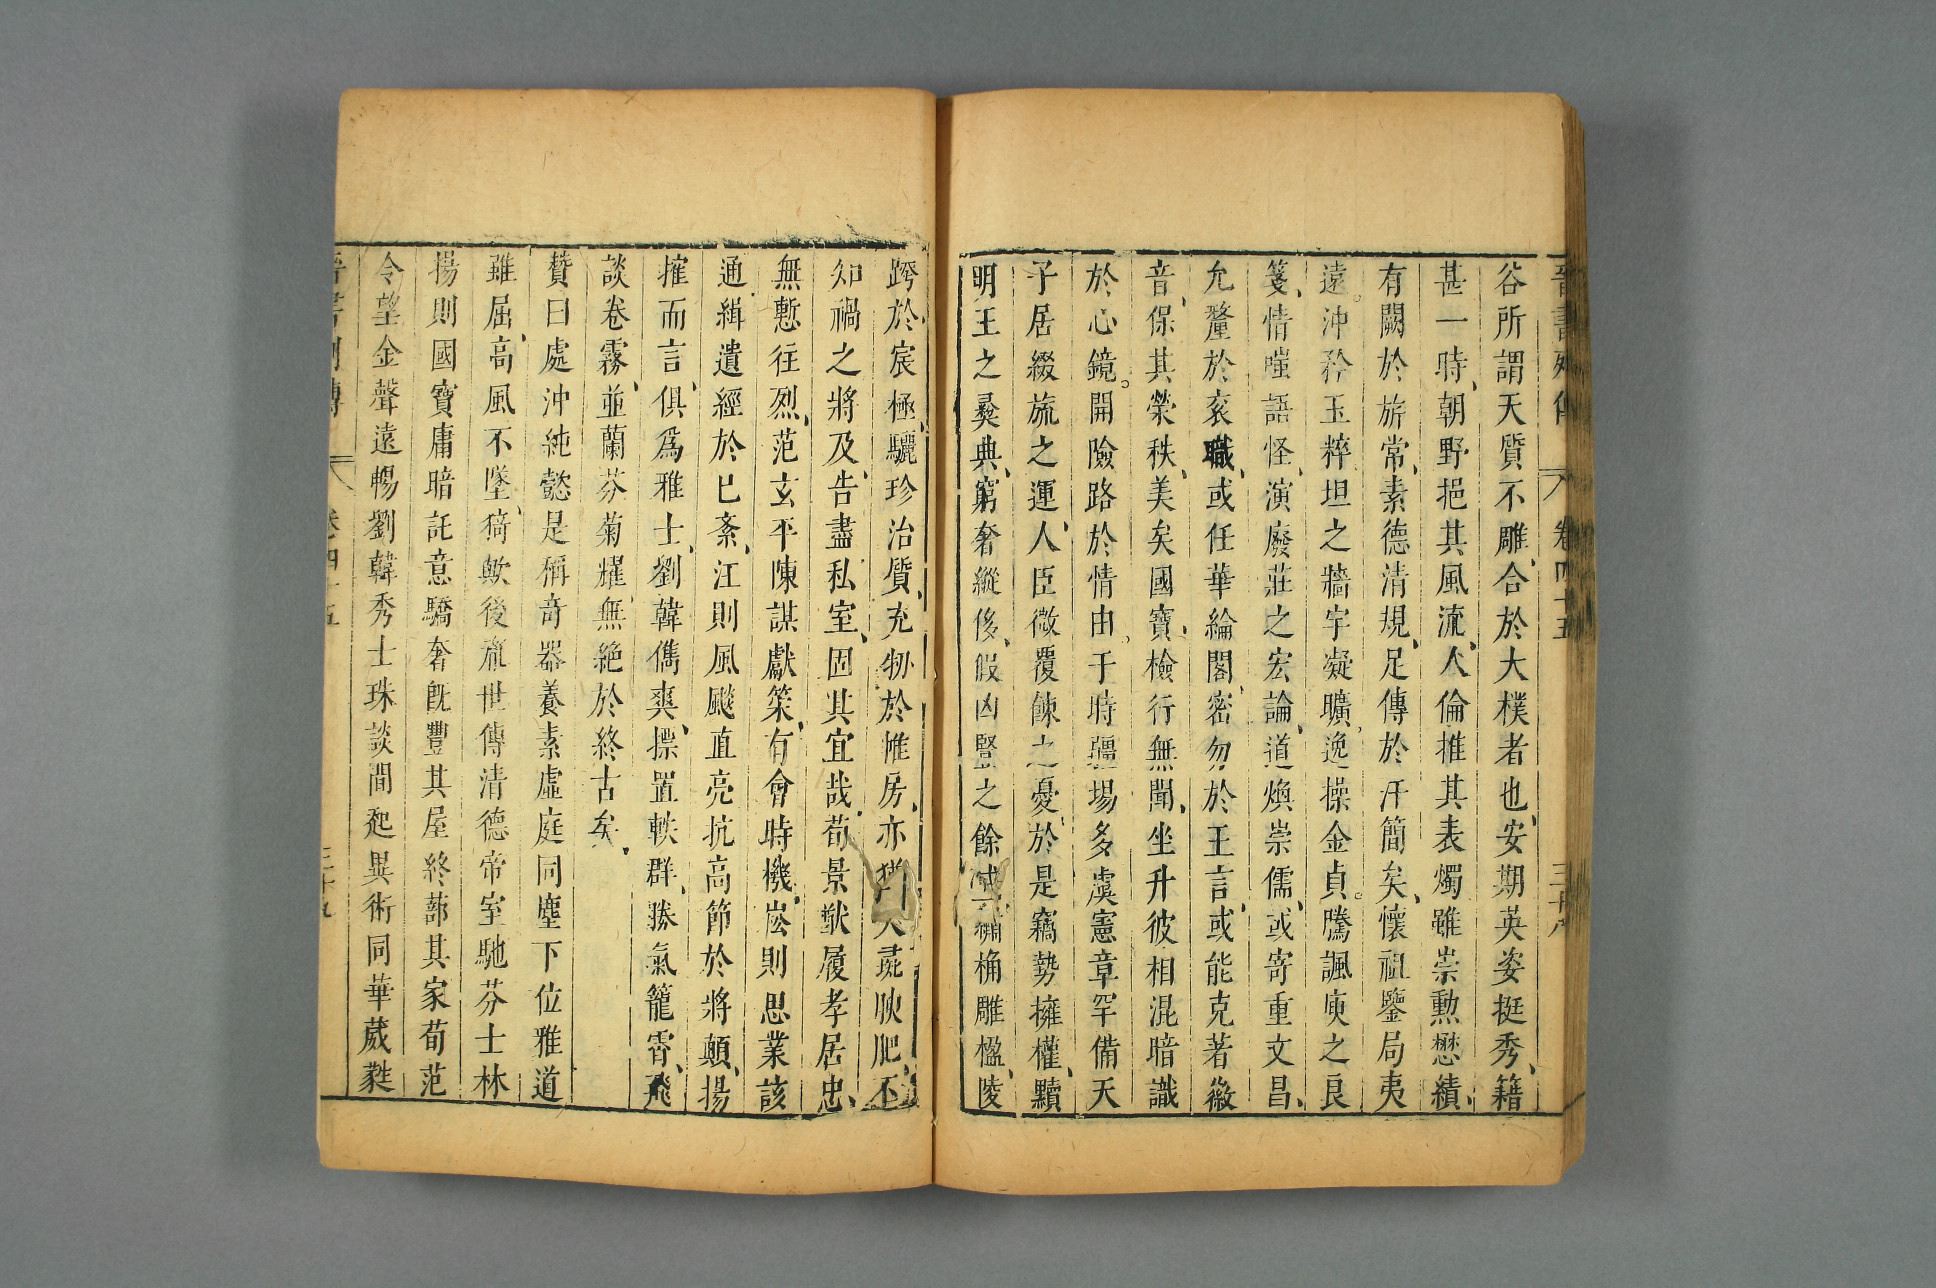 晉書列傳 卷四十五 三十八
谷所謂天質不雕合於大樸者也安期英姿挺秀籍
甚一時朝野挹其風流人倫推其表燭雖崇勲懋績
有闕於旂常素德清規足傳於汗簡矣懷祖鑒局夷
遠沖矜玉粹坦之牆宇凝曠逸操金貞騰諷庾之良
箋情嗤語怪演廢莊之宏論道煥崇儒或寄重文昌
允釐於衮職或任華綸閣密勿於王言或能克著徽
音保其榮秩美矣國寶檢行無聞坐升彼相混暗識
於心鏡開險路於情由于時疆場多虞憲章罕備天
子居綴旒之運人臣微覆餗之憂於是竊勢擁權黷
明王之彞典窮奢縱侈假凶豎之餘威 繡桷雕楹陵
跨於宸極驪珍治質充牣於帷房亦猶犬彘腴肥不
知禍之將及告盡私室固其宜哉荀景猷履孝居忠
無慙往烈范玄平陳謀獻策有會時機崧則思業該
通緝遺經於已紊汪則風飈直亮抗高節於將顛揚
搉而言俱爲雅士劉韓儁爽摽置軼群勝氣籠霄飛
談卷霧並蘭芬菊耀無絶於終古矣
贊曰處沖純懿是稱竒器養素虛庭同塵下位雅道
雖屈高風不墜猗歟後胤世傳清德帝室馳芬士林
揚則國寶庸暗託意驕奢旣豐其屋終蔀其家荀范
令望金聲遠暢劉韓秀士珠談間起異術同華葳蕤
晉書列傳 卷四十五 三十九